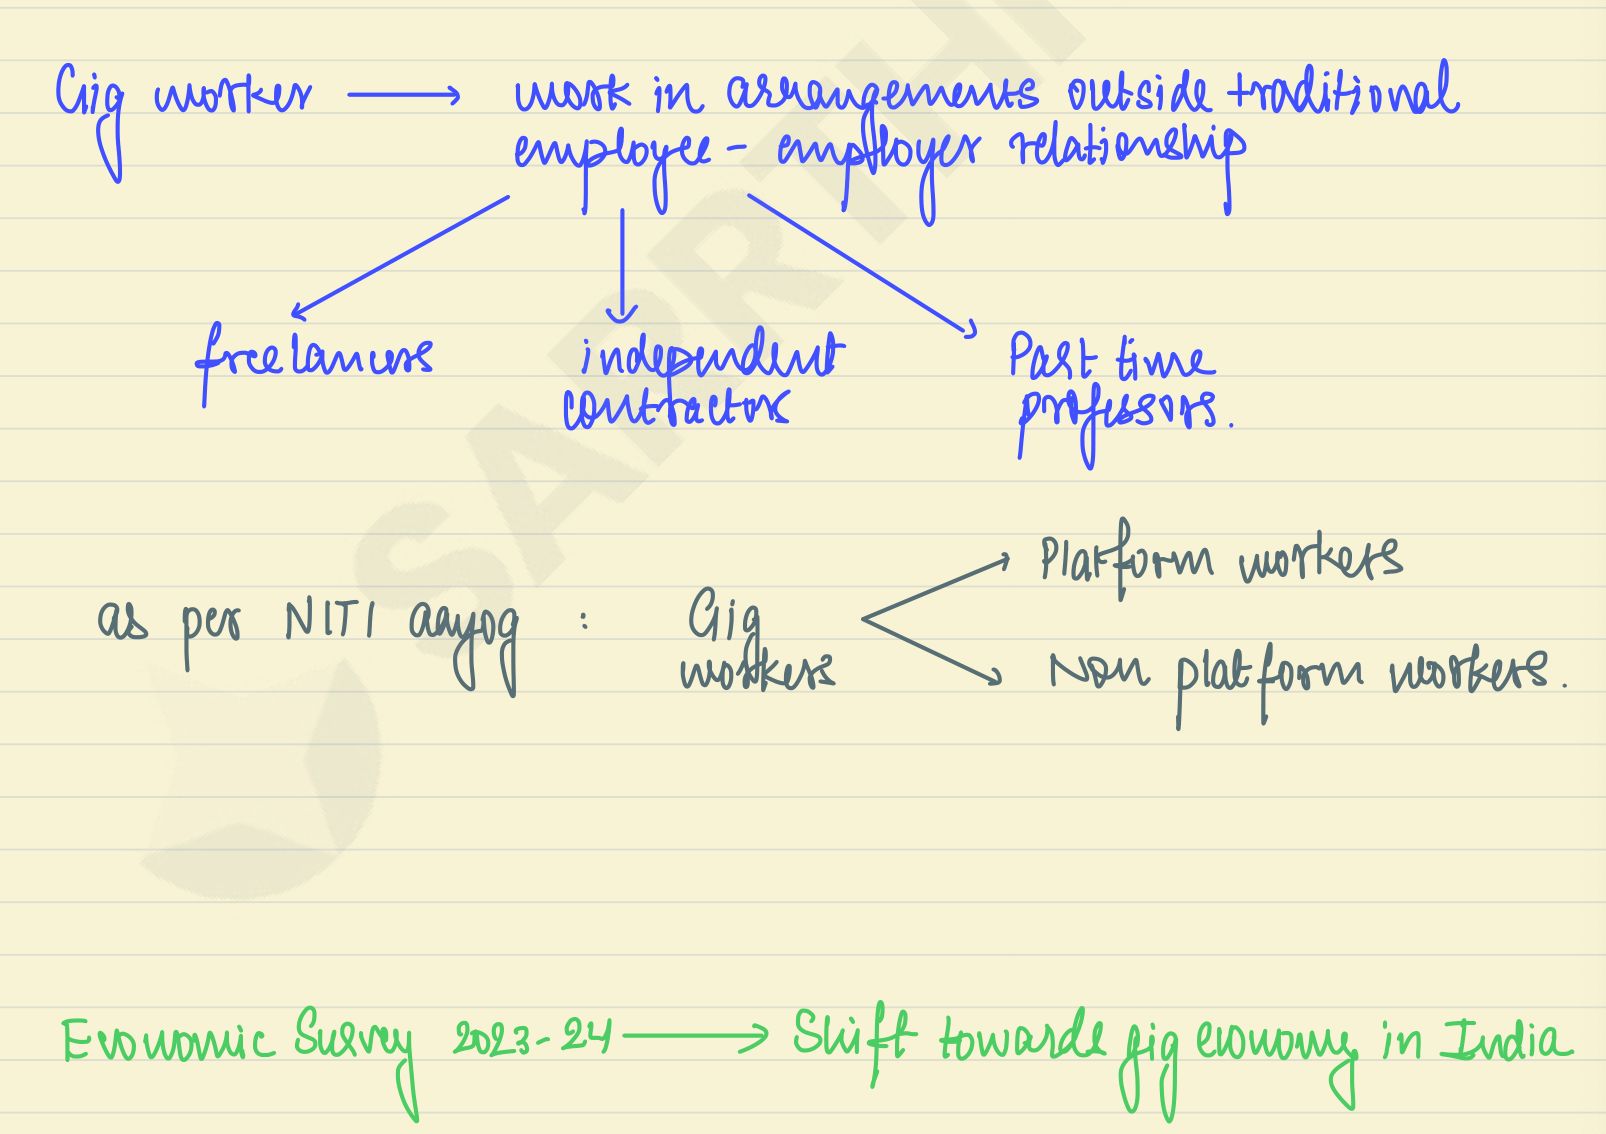 Gig worker → work in arrangements outside traditional
employee - employer relationship
freelancers
independent
contractors
Part time
professors.
as per NITI aayog : Gig
workers
Platform workers
Non platform workers.
Economic Survey 2023-24 → Shift towards gig economy in India
SARTHI